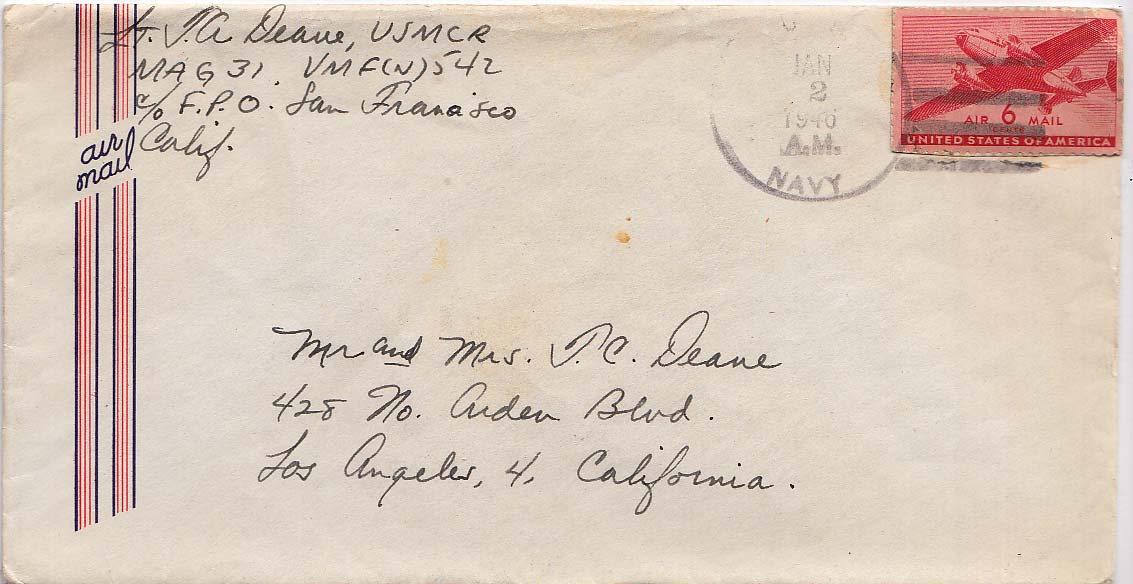 Lt. J.A. Deane, USMCR
MAG 31 VMF(N) 542
c/o F.P.O. San Francisco
Calif.
air
mail
JAN
2
1946
A.M.
NAVY
AIR 6 MAIL
CENTS
UNITED STATES OF AMERICA
Mr and Mrs. J.C. Deane
428 No. Arden Blvd.
Los Angeles, 4, California.